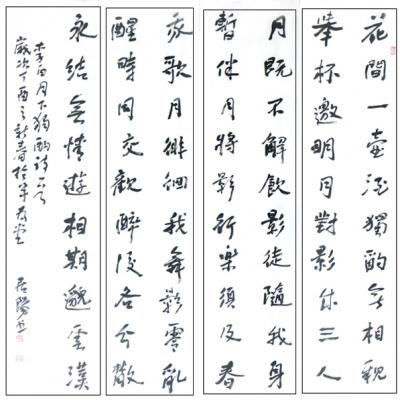 花間一壺酒獨酌無相親
舉杯邀明月對影成三人
月既不解飲影徒隨我身
暫伴月將影行樂須及春
我歌月徘徊我舞影零亂
醒時同交歡醉後各分散
永結無情遊相期邈雲漢
李白月下獨酌詩一首
歲次丁酉之新春於